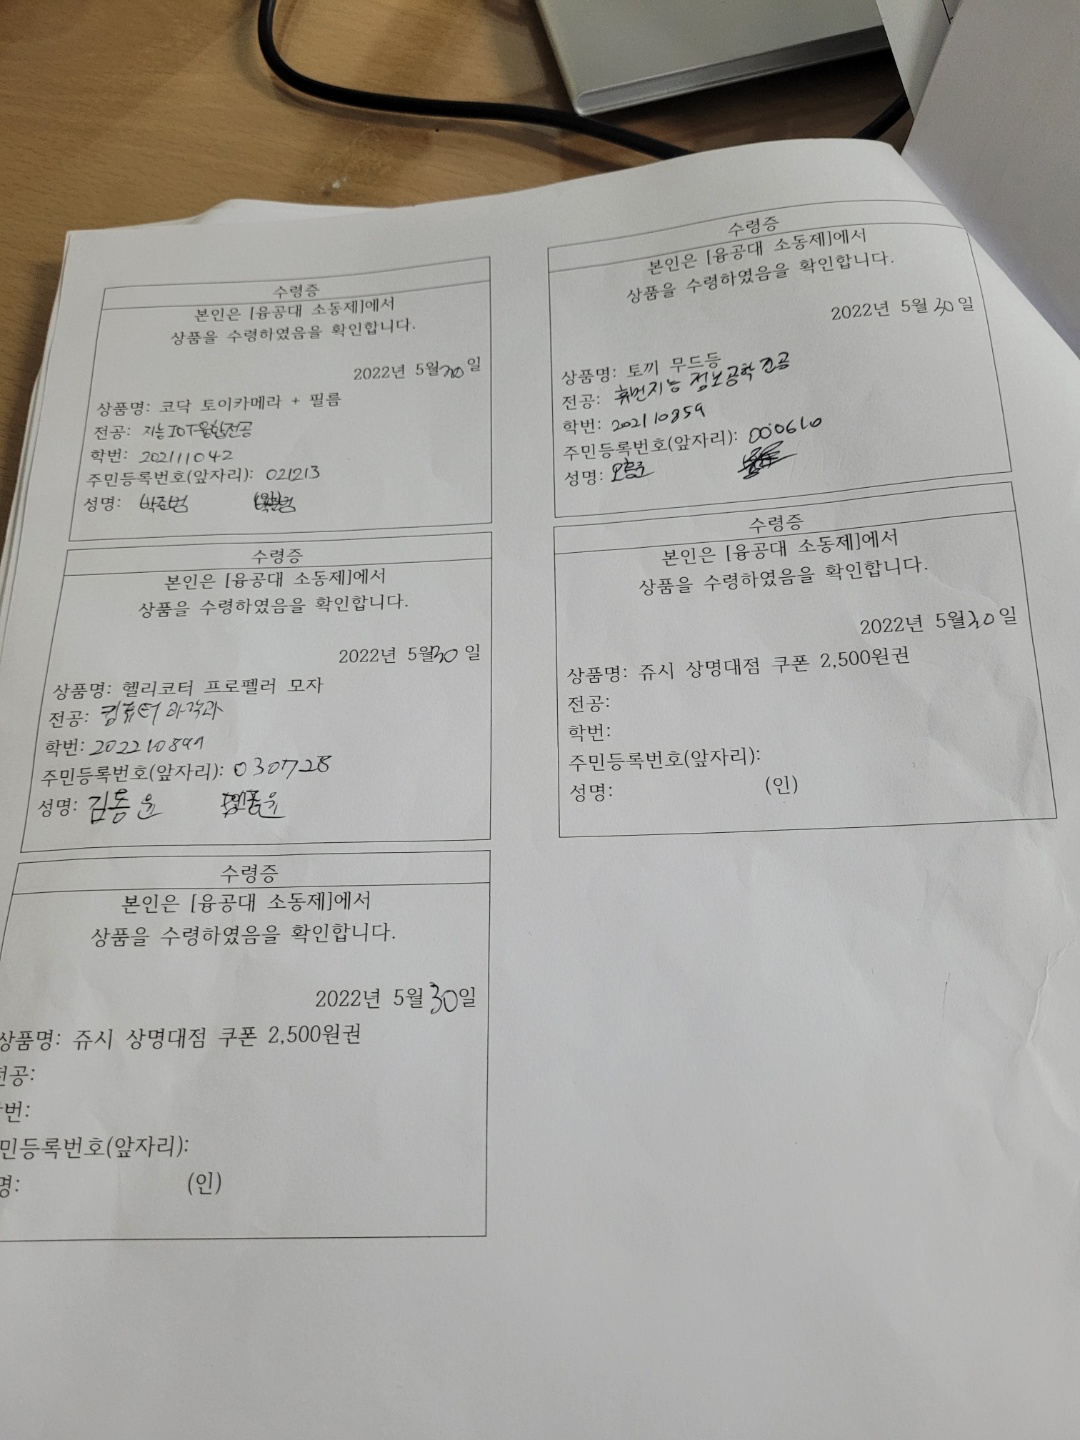 수령증
본인은 [융공대 소동제]에서
상품을 수령하였음을 확인합니다.
2022년 5월 30일
상품명: 코닥 토이카메라 + 필름
전공: 지능IOT융합전공
학번: 202111042
주민등록번호(앞자리): 021213
성명:
수령증
본인은 [융공대 소동제]에서
상품을 수령하였음을 확인합니다.
2022년 5월 30일
상품명: 헬리코터 프로펠러 모자
전공: 컴퓨터 과학과
학번:
주민등록번호(앞자리): 030728
성명: 김동윤
수령증
본인은 [융공대 소동제]에서
상품을 수령하였음을 확인합니다.
2022년 5월 30일
상품명: 쥬시 상명대점 쿠폰 2,500원권
전공:
번:
민등록번호(앞자리):
명: (인)
수령증
본인은 [융공대 소동제]에서
상품을 수령하였음을 확인합니다.
2022년 5월 30일
상품명: 토끼 무드등
전공: 휴먼지능 정보공학 전공
학번: 202110859
주민등록번호(앞자리): 000610
성명:
수령증
본인은 [융공대 소동제]에서
상품을 수령하였음을 확인합니다.
2022년 5월 30일
상품명: 쥬시 상명대점 쿠폰 2,500원권
전공:
학번:
주민등록번호(앞자리):
성명: (인)